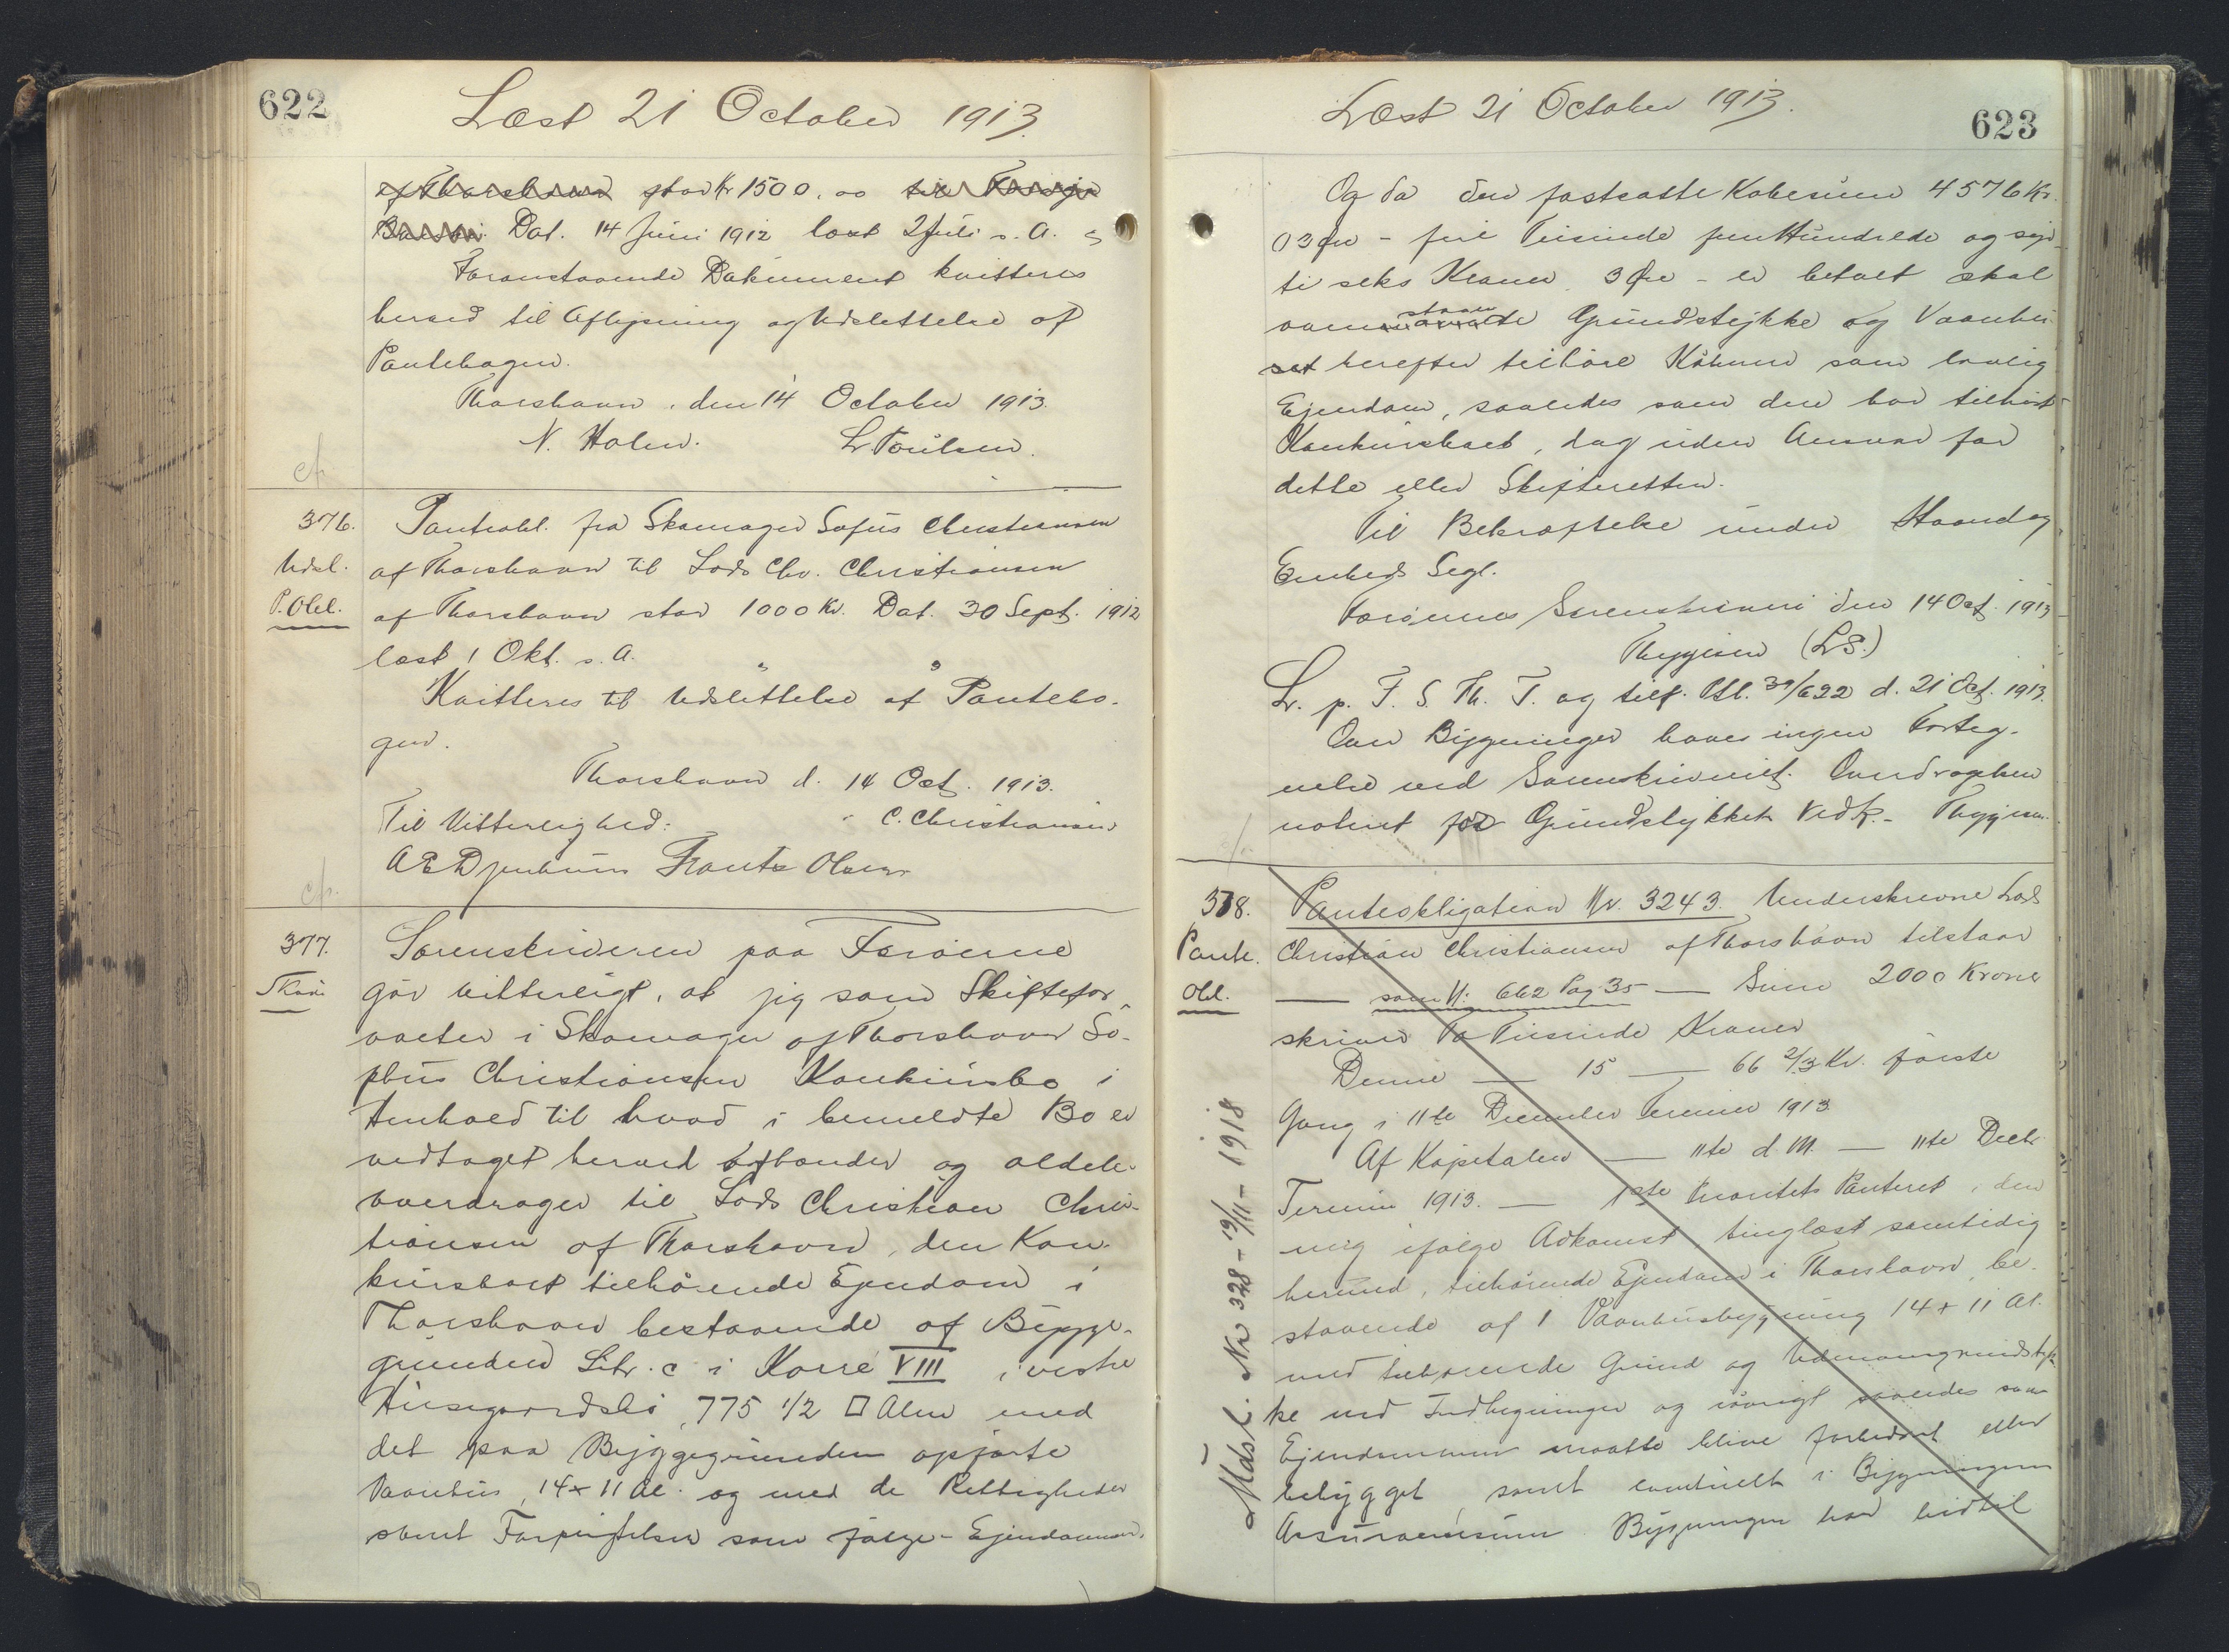 622
Læst 21 October 1913.
af Thorshavn stor Kr 1500.00 til Færøje
Banken. Dat. 14 Juni 1912 læst 2 Juli s. A.
Foranstaaende Dokument kvitteres
herved til Aflysning og Udslettelse af
Pantebogen.
Thorshavn, den 14 October 1913.
N. Holm. L. Poulsen.
376. Panteobl. fra Skomager Sofus Christiansen
Udsl. af Thorshavn til Lods Chr. Christiansen
P.Obl. af Thorshavn stor 1000 Kr. Dat. 30 Sept. 1912
læst 1 Okt. s. A.
Kvitteres til Udslettelse af Pantebo-
gen.
Thorshavn d. 14 Oct. 1913.
Til Vitterlighed: C. Christiansen
A E Djurhuus Frantz Olsen
377. Sorenskriveren paa Færöerne
Skøde gör vitterligt, at jeg som Skiftefor-
valter i Skomager af Thorshavn So-
phus Christiansen Konkursbo i
Henhold til hvad i bemeldte Bo er
vedtaget herved afhænder og aldeles
overdrager til Lods Christian Chris-
tiansen af Thorshavn, den Kon-
kursboet tilhörende Ejendom i
Thorshavn bestaaende af Bygge-
grunden Litr. c i Karré VIII i vestre
Husegaardsbö, 775 1/2 □ Alen med
det paa Byggegrunden opförte
Vaanhus, 14 x 11 Al. og med de Rettigheder
samt Forpligtelser som fölge Ejendommen.
623
Læst 21 October 1913.
Og da den fastsatte Kobesum 4576 Kr.
03 Øre - fire Tusinde fem Hundrede og syv-
ti seks Kroner 3 Øre - er betalt skal
staaende Grundstykke og Vaanhu-
set herefter tilhöre Köberen som lovlig
Ejendom, saaledes som den har tilhört
Konkursboet, dog uden Ansvar for
dette eller Skifteretten.
Til Bekræftelse under Haand og
Embeds Segl.
Færöernes Sorenskriveri den 14 Oct. 1913
Thygesen (L.S.)
L. p. F. S. Th. T. og tilf. Ptb. 39/622 d. 21 Oct. 1913.
Over Bygninger haves ingen Forteg-
nelse ved Sorenskriveriet. Overdragelsen
noteret for Grundstykkets Vedk. Thygesen
378. Panteobligation Nr. 3243. Underskrevne Lods
Pante. Christian Christiansen af Thorshavn tilstaar
Obl. — som N: 662 Pag 35 — Sum 2000 Kroner
skriver To Tusinde Kroner
Denne — 15 — 66 2/3 Kr. förste
Gang i 11te December Termin 1913
Af Kapitalen — 11te d. M. — 11te Decbr.
Termin 1913. — 1ste Prioritets Panteret i den
mig ifölge Adkomst, tinglæst samtidig
hermed, tilhörende Ejendom i Thorshavn, be-
staaende af 1 Vaanhusbygning 14 x 11 Al.
med tilhörende Grund og Udenomsgrundstyk-
ke med Indhegninger og iövrigt saaledes som
Ejendommen maatte blive forbedret eller
bebygget, samt eventuelt i Bygningens
Assurancesum. Bygningen har hidtil
Udsl. Nr 328 - 19/11 - 1918